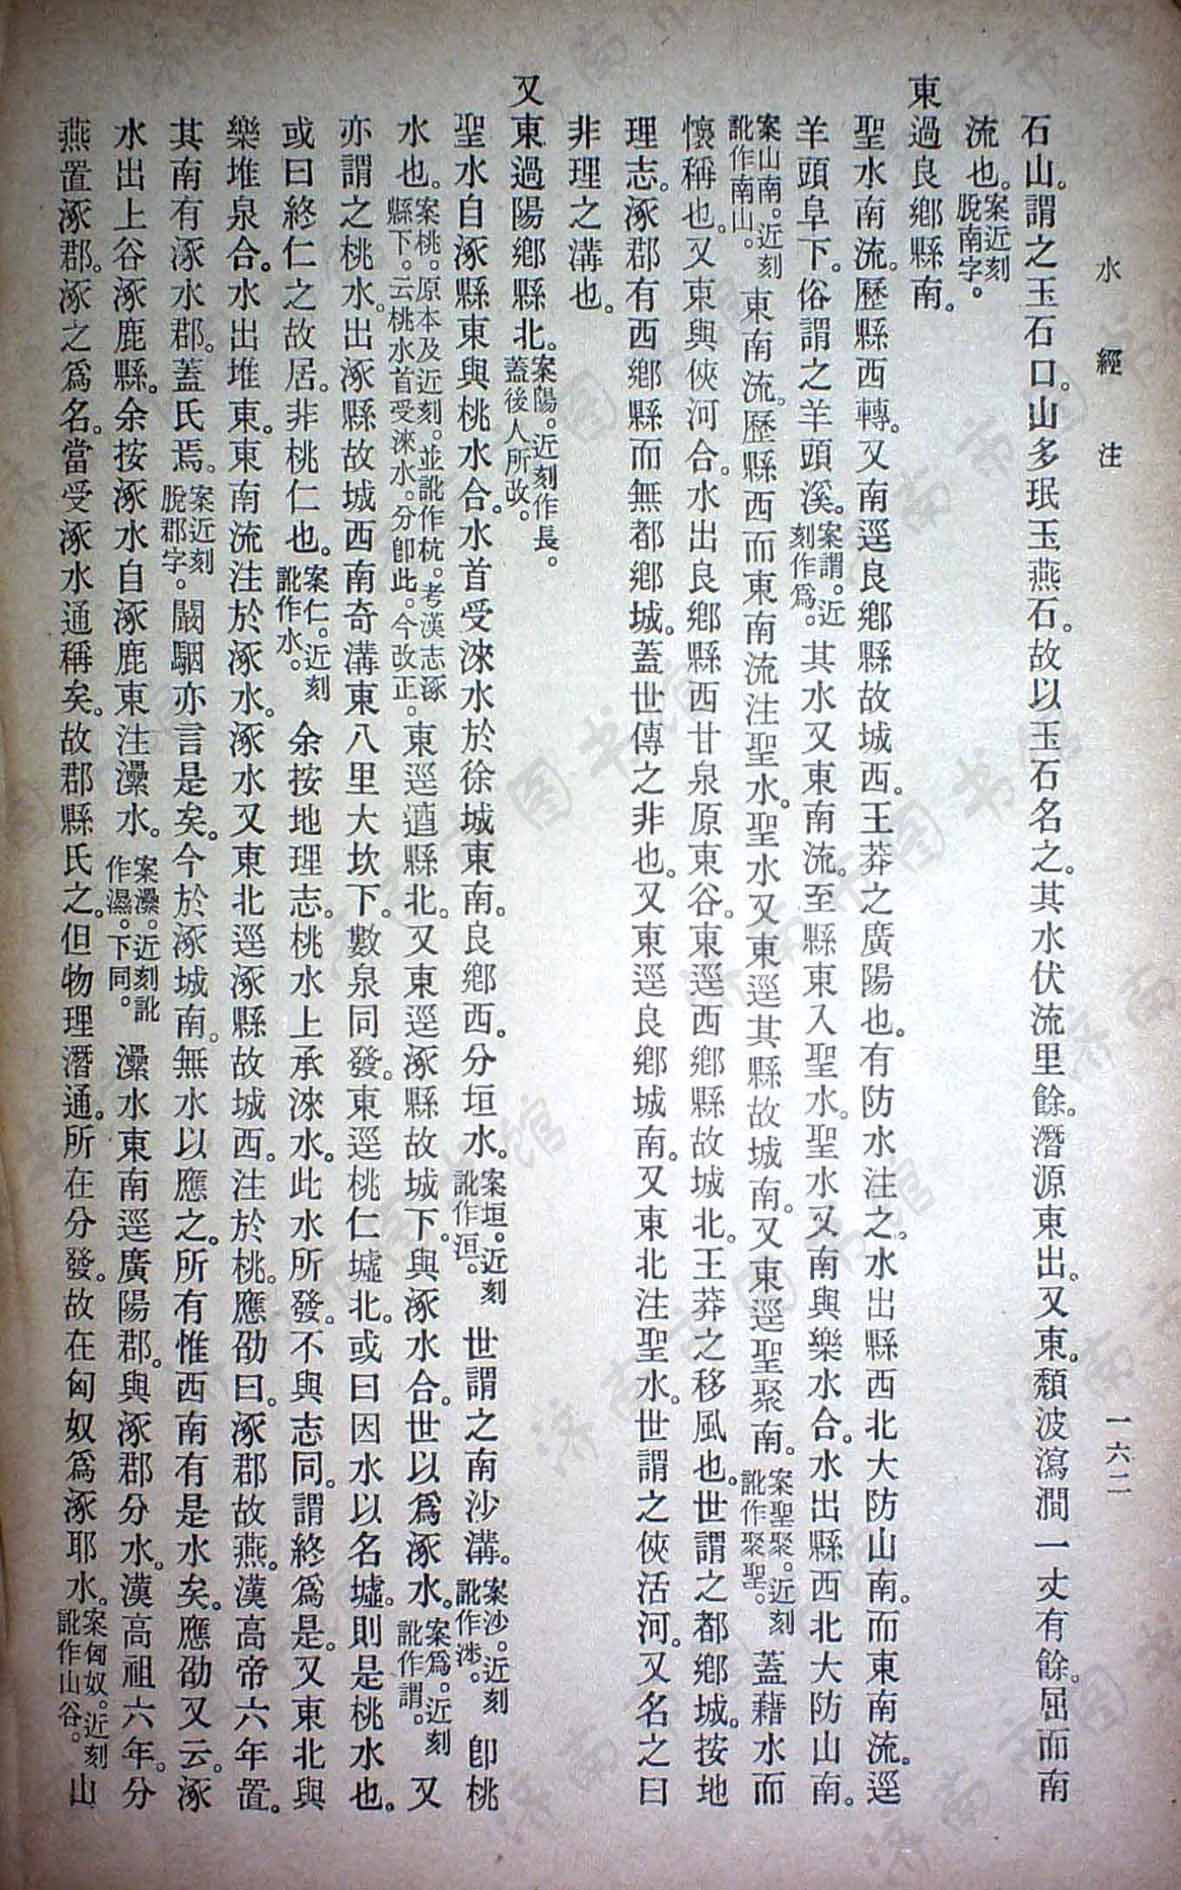 水經注
一六二
石山。謂之玉石口。山多珉玉燕石。故以玉石名之。其水伏流里餘。潛源東出。又東。頹波瀉澗一丈有餘。屈而南
流也。案近刻脫南字。
東過良鄉縣南。
聖水南流。歷縣西轉。又南逕良鄉縣故城西。王莽之廣陽也。有防水注之。水出縣西北大防山南。而東南流。逕
羊頭阜下。俗謂之羊頭溪。案謂。近刻作爲。其水又東南流。至縣東入聖水。聖水又南與樂水合。水出縣西北大防山南。
案山南。近刻訛作南山。東南流。歷縣西而東南流注聖水。聖水又東逕其縣故城南。又東逕聖聚南。案聖聚。近刻訛作聚聖。蓋藉水而
懷稱也。又東與俠河合。水出良鄉縣西甘泉原東谷。東逕西鄉縣故城北。王莽之移風也。世謂之都鄉城。按地
理志。涿郡有西鄉縣而無都鄉城。蓋世傳之非也。又東逕良鄉城南。又東北注聖水。世謂之俠活河。又名之曰
非理之溝也。
又東過陽鄉縣北。案陽。近刻作長。蓋後人所改。
聖水自涿縣東與桃水合。水首受淶水於徐城東南。良鄉西。分垣水。案垣。近刻訛作洹。世謂之南沙溝。案沙。近刻訛作涉。卽桃
水也。案桃。原本及近刻。並訛作杭。考漢志涿縣下。云桃水首受淶水。分卽此。今改正。東逕遒縣北。又東逕涿縣故城下。與涿水合。世以爲涿水。案爲。近刻訛作謂。又
亦謂之桃水。出涿縣故城西南奇溝東八里大坎下。數泉同發。東逕桃仁墟北。或曰因水以名墟。則是桃水也。
或曰終仁之故居。非桃仁也。案仁。近刻訛作水。余按地理志。桃水上承淶水。此水所發。不與志同。謂終爲是。又東北與
樂堆泉合。水出堆東。東南流注於涿水。涿水又東北逕涿縣故城西。注於桃。應劭曰。涿郡故燕。漢高帝六年置。
其南有涿水郡。蓋氏焉。案近刻脫郡字。闞駰亦言是矣。今於涿城南。無水以應之。所有惟西南有是水矣。應劭又云。涿
水出上谷涿鹿縣。余按涿水自涿鹿東注㶟水。案㶟。近刻訛作濕。下同。㶟水東南逕廣陽郡。與涿郡分水。漢高祖六年。分
燕置涿郡。涿之爲名。當受涿水通稱矣。故郡縣氏之。但物理潛通。所在分發。故在匈奴爲涿耶水。案匈奴。近刻訛作山谷。山